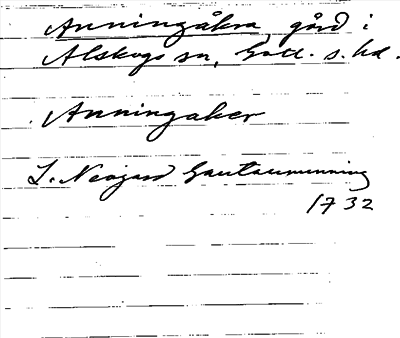 Anningåkra gård i
Alskogs sn, Gotl. s. hd.
Anningaker
L. Neogard Gautauminning
1732